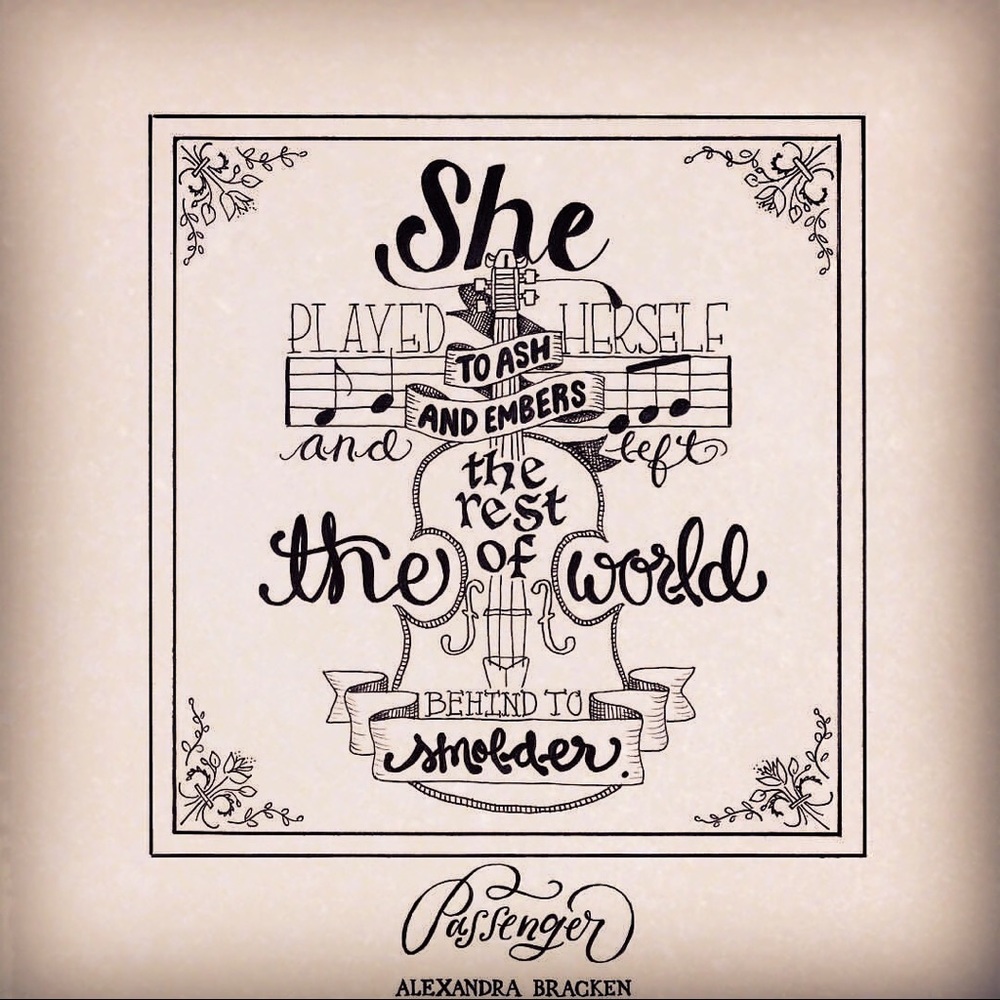 She
PLAYED HERSELF
TO ASH
AND EMBERS
and left
the
rest
of
the world
BEHIND TO
smolder.
Passenger
ALEXANDRA BRACKEN